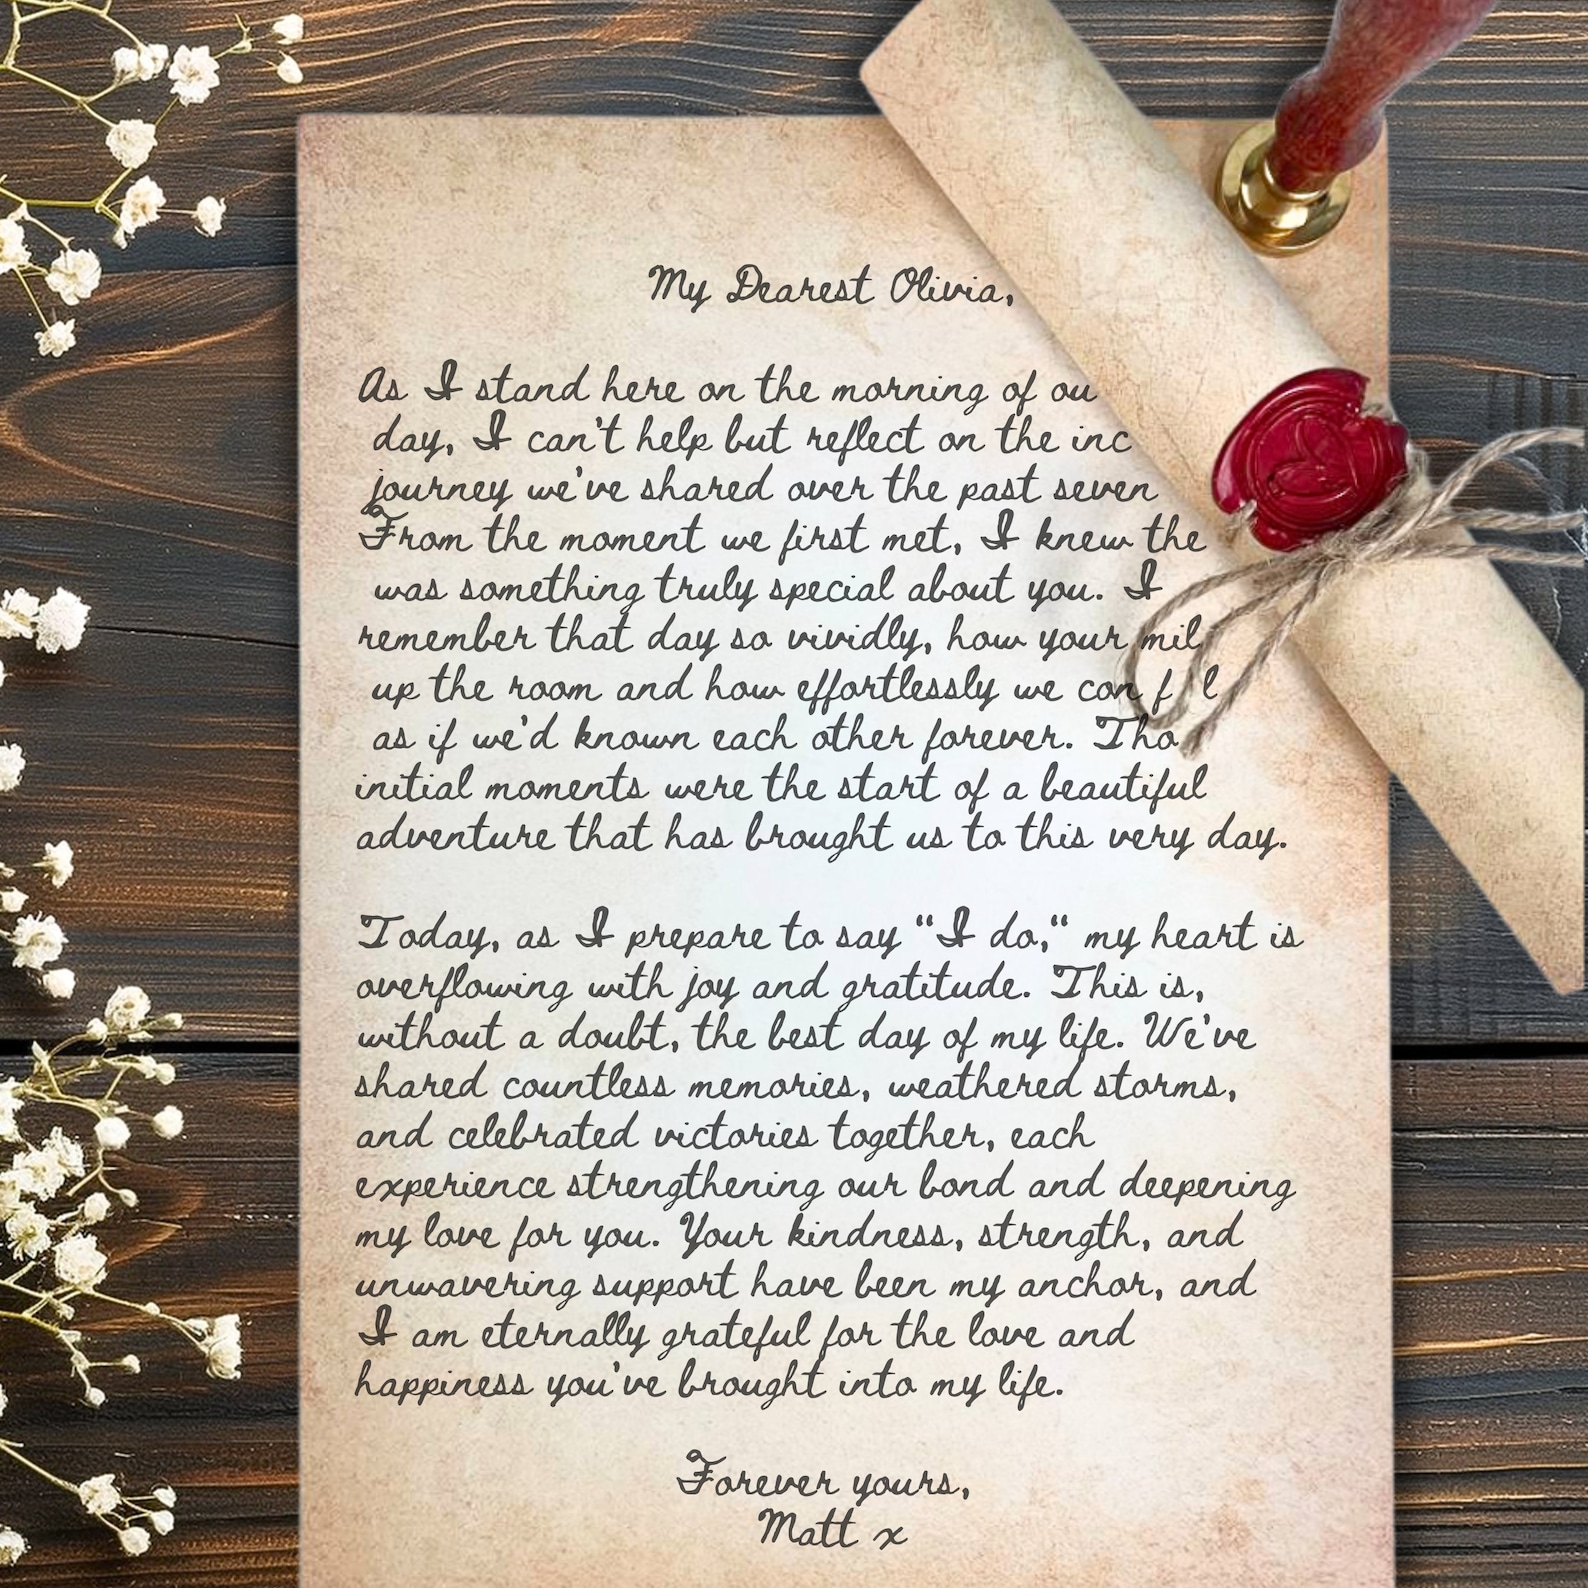 My Dearest Olivia,
As I stand here on the morning of
day, I can't help but reflect on the
journey we've shared over the past seven
From the moment we first met, I knew
was something truly special about you. I
remember that day so vividly, how your
up the room and how effortlessly we
as if we'd known each other forever.
initial moments were the start of a beautiful
adventure that has brought us to this very day.
Today, as I prepare to say "I do," my heart is
overflowing with joy and gratitude. This is,
without a doubt, the best day of my life. We've
shared countless memories, weathered storms,
and celebrated victories together, each
experience strengthening our bond and deepening
my love for you. Your kindness, strength, and
unwavering support have been my anchor, and
I am eternally grateful for the love and
happiness you've brought into my life.
Forever yours,
Matt x